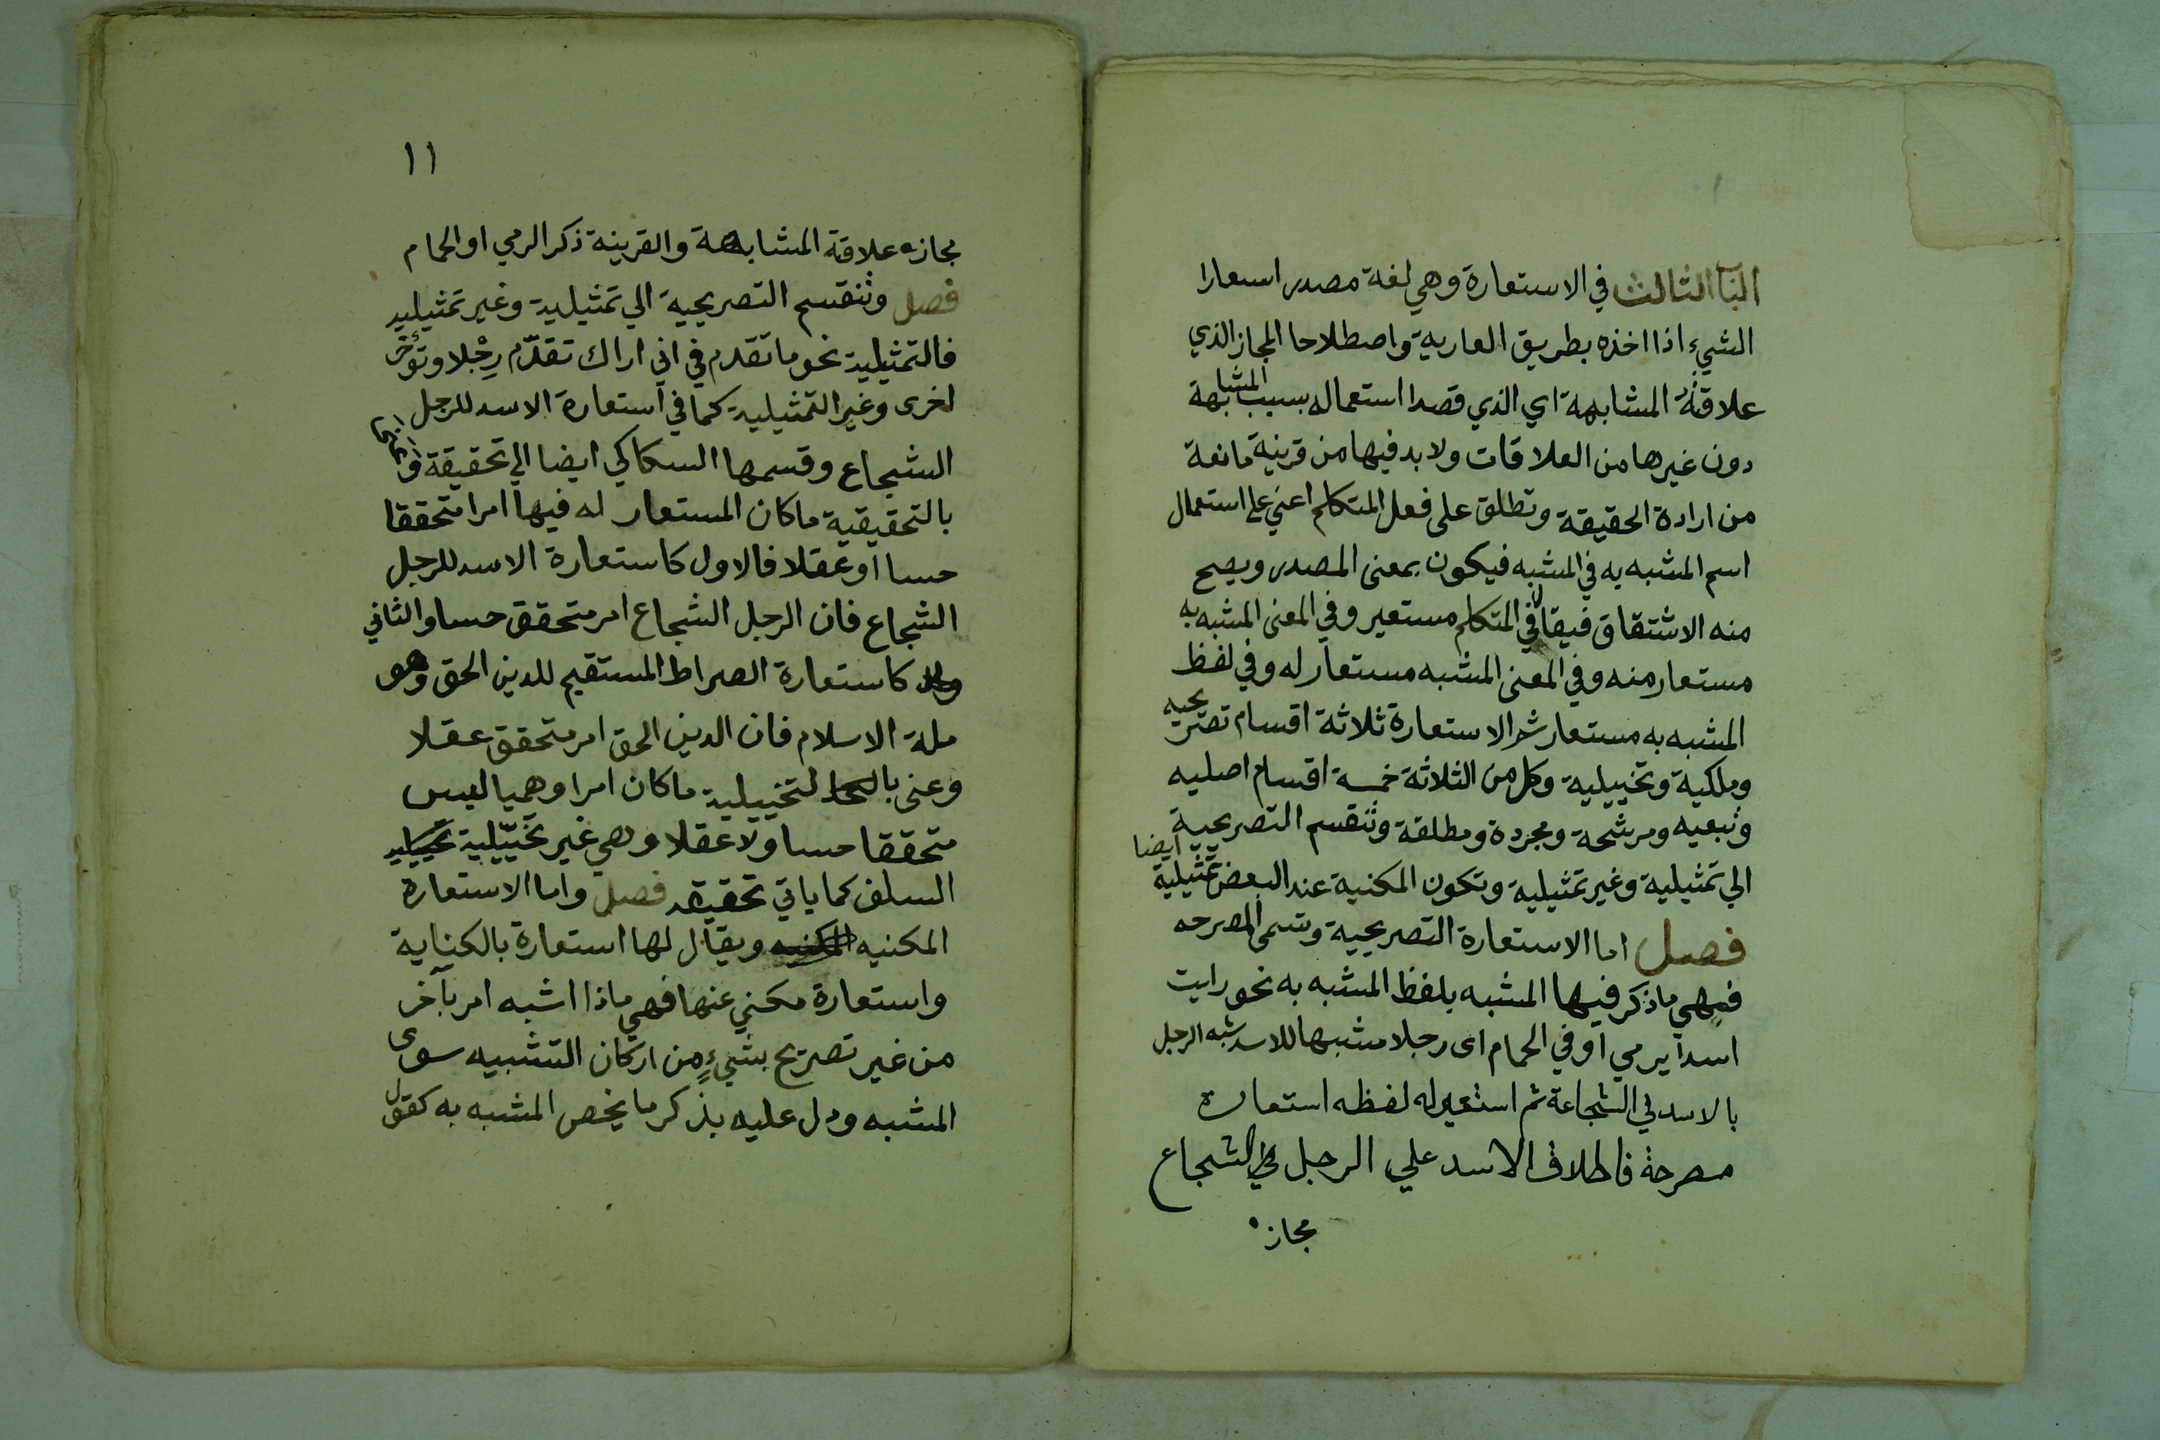 البآ الثالث في الاستعارة وهي لغة مصدر استعارا
الشيء اذا اخذه بطريق العارية واصطلاحا المجاز الذي
علاقة المشابهة اي الذي قصد استعماله بسبب المشابهة
دون غيرها من العلاقات ولا بد فيها من قرينة مانعة
من ارادة الحقيقة وتطلق على فعل المتكلم اعني على استعمال
اسم المشبه به في المشبه فيكون بمعنى المصدر ويصح
منه الاشتقاق فيقال في المتكلم مستعير وفي المعنى المشبه به
مستعار منه وفي المعنى المشبه مستعار له وفي لفظ
المشبه به مستعار ثم الاستعارة ثلاثة اقسام تصريحيه
وملكية وتخييلية وكل من الثلاثة خمسة اقسام اصليه
وتبعيه ومرشحة ومجردة ومطلقة وتنقسم التصريحية ايضا
الي تمثيلية وغير تمثيلية وتكون المكنية عند البعض تمثيلية
فصل اما الاستعارة التصريحية وتسمى المصرحه
فهي ما ذكر فيها المشبه بلفظ المشبه به نحو رايت
اسدا يرمي او في الحمام اى رجلا مشبها للاسد شبه الرجل
بالاسد في الشجاعة ثم استعير له لفظه استعارة
مصرحة فاطلاق الاسد علي الرجل الشجاع
مجازه
١١
مجازه علاقة المشابهة والقرينة ذكر الرمي او الحمام
فصل وتنقسم التصريحية الي تمثيلية وغير تمثيلية
فالتمثيلية نحو ما تقدم في اني اراك تقدّم رِجْلا وتؤخّر
اخرى وغير التمثيلية كما في استعارة الاسد للرجل
الشجاع وقسمها السكاكي ايضا الي تحقيقة
بالتحقيقية ما كان المستعار له فيها امرا متحققا
حسا او عقلا فالاول كاستعارة الاسد للرجل
الشجاع فان الرجل الشجاع امر متحقق حسا والثاني
كاستعارة الصراط المستقيم للدين الحق وهو
ملة الاسلام فان الدين الحق امر متحقق عقلا
وعنى بالتخييلية ما كان امرا وهميا ليس
متحققا حسا ولا عقلا وهي غير تخيّيلية
السلف كما ياتي تحقيقه فصل واما الاستعارة
المكنيه ويقال لها استعارة بالكناية
واستعارة مكني عنها فهي ماذا اشبه امر بآخر
من غير تصريح بشيءٍ من اركان التشبيه سوى
المشبه ودل عليه بذكر ما يخص المشبه به كقول